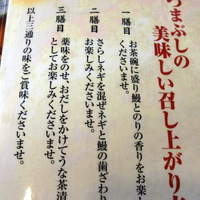 うまぶしの
美味しい召し上がり方
一膳目
お茶碗に盛り鰻とのりの香りをお楽
くださいませ。
二膳目
さらしネギを混ぜネギと鰻の歯ざわり
お楽しみくださいませ。
三膳目
薬味をのせ、おだしをかけてうな茶漬
としてお楽しみくださいませ。
以上三通りの味をご賞味くださいませ。